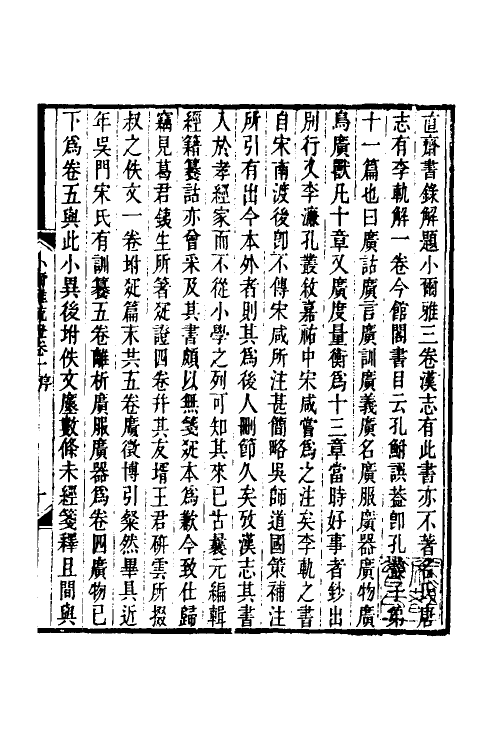 直齋書錄解題小爾雅三卷漢志有此書亦不著名氏唐
志有李軌解一卷今館閣書目云孔鮒誤葢卽孔叢子第
十一篇也曰廣詁廣言廣訓廣義廣名廣服廣器廣物廣
鳥廣獸凡十章又廣度量衡爲十三章當時好事者鈔出
別行攷李濂孔叢敘嘉祐中宋咸嘗爲之注矣李軌之書
自宋南渡後卽不傳宋咸所注甚簡略吳師道國策補注
所引有出今本外者則其爲後人刪節久矣攷漢志其書
入於孝經家而不從小學之列可知其來已古曩元編輯
經籍籑詁亦曾采及其書頗以無箋疏本爲歉今致仕歸
竊見葛君鐵生所著疏證四卷幷其友壻王君硏雲所掇
叔之佚文一卷坿疏篇末共五卷廣徵博引粲然畢具近
年吳門宋氏有訓纂五卷離析廣服廣器爲卷四廣物已
下爲卷五與此小異後坿佚文廑數條未經箋釋且間與
小爾雅疏證卷一序